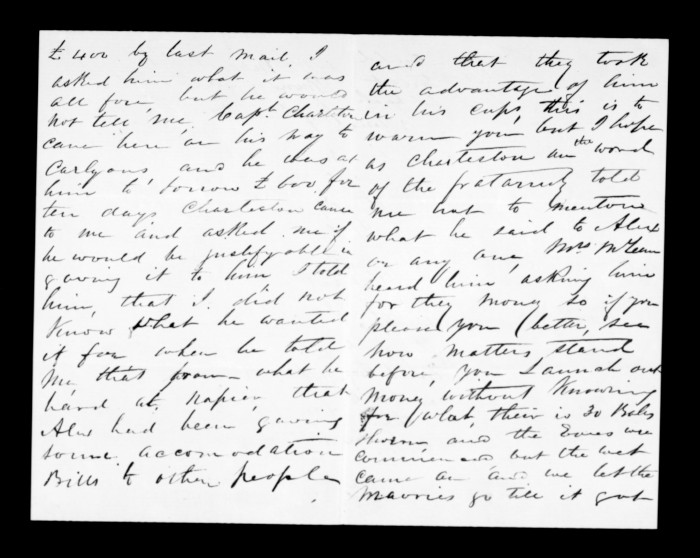 £400 by last mail. I
asked him what it was
all fore, but he would
not tell me, Capt. Charleston
came here on his way to
Carlyons and he was at
him to borrow £600 for
ten days Charleston came
to me and asked me if
he would be justifyable in
gaving it to him I told
him, that I did not
Know what he wanted
it for when he told
me, that from what he
hard at Napier, that
Alex had been gaving
some accomodation
Bills to other people
and that they took
the advantage of him
in his cups, this is to
warn you, but I hope
as Charleston on the word
of the fraternity told
me not to mentione
what he said to Alex
or any one, Mrs McLean
heard him asking him
for they money so if you
please you (better, see
how matters stand
before, you Launch out
money without Knowing
for what, their is 30 Bales
shorn and the Ewes were
commenced but the wet
came on and we let the
Maories go till it got